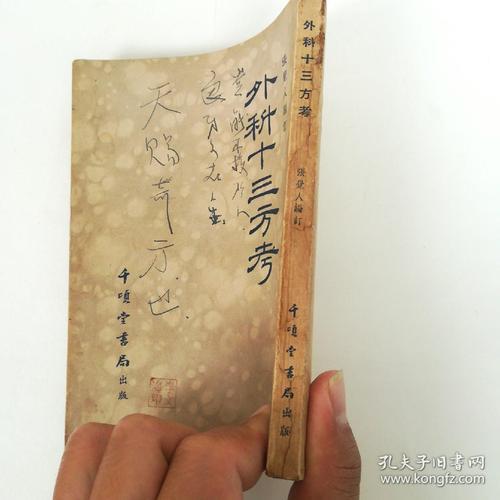 張覺人編訂
外科十三方考
千頃堂書局出版
天賜奇方也.
外科十三方考
張覺人編訂
千頃堂書局出版
孔夫子旧书网
www.kongfz.com